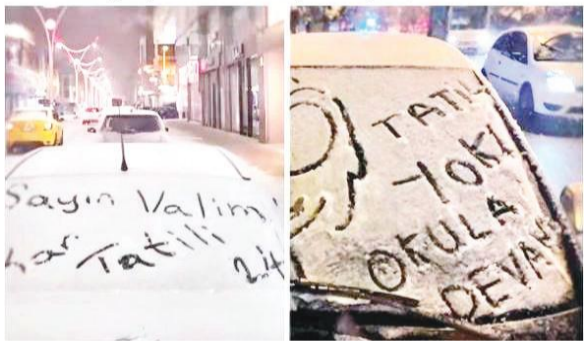 Sayın Valim
kar Tatili
2.4
TATİL
YOK
OKULA
DEVAM